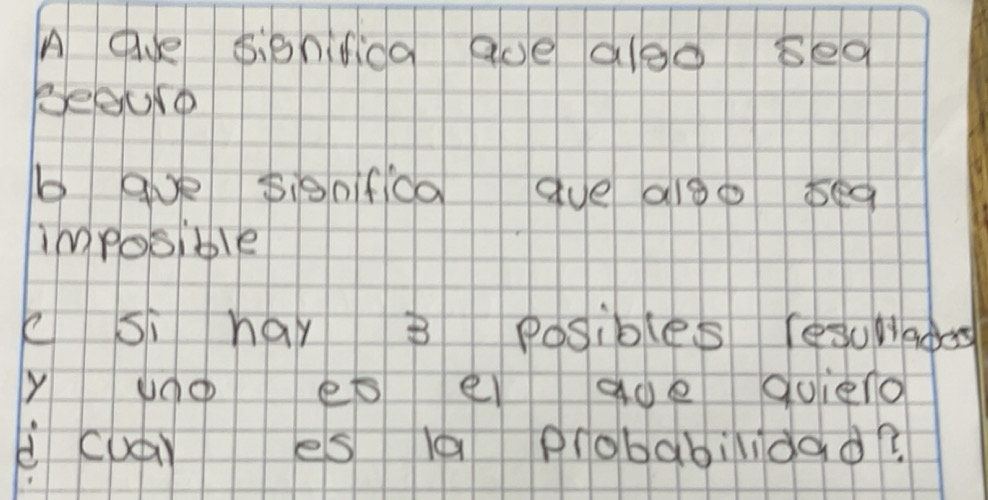 A que significa que algo sea
seguro
b que significa que algo sea
imposible
c si hay 3 posibles resultados
y uno es el que quiero
¿cual es la probabilidad?